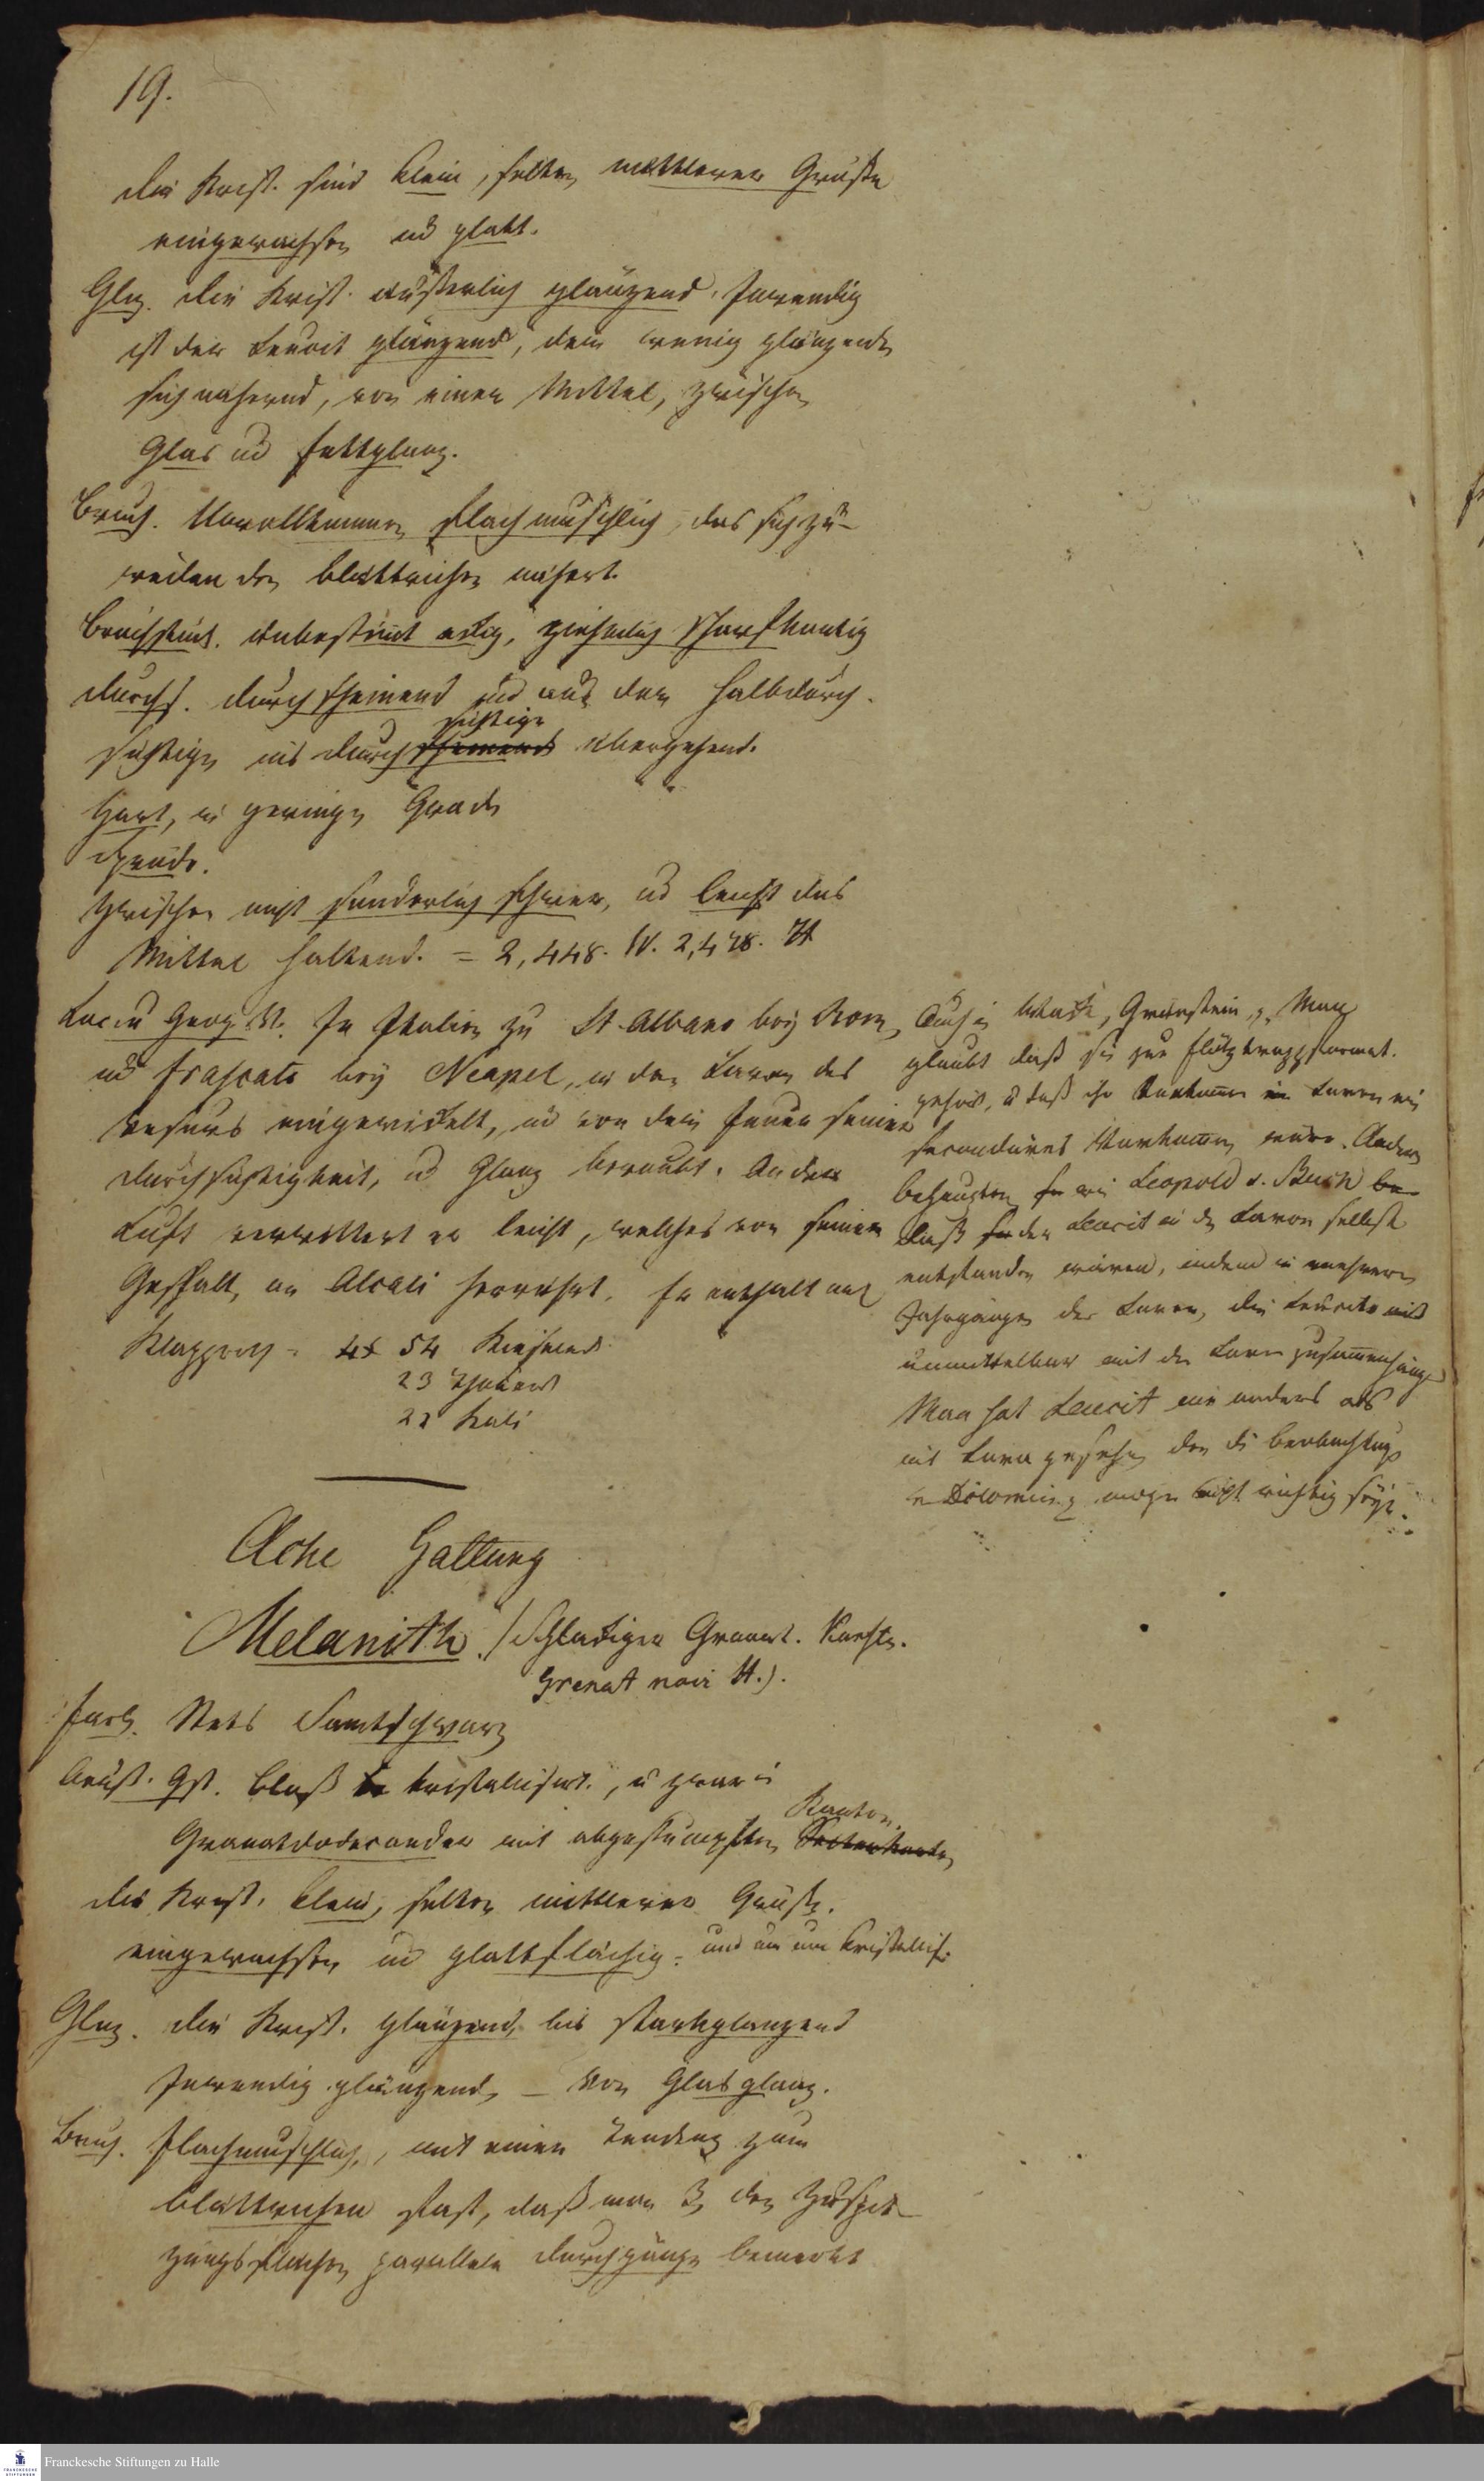 19.
die Krist. sind klein, selten mittlerer Grösse
eingewachsen und glatt.
Glnz. die Krist. äußerlich glänzend. Inwendig
ist der Leucit glänzend, dem wenig glänzenden
sich nähernd, von einem Mittel, zwischen
Glas und Fettglanz.
Bruch. Unvollkommen flachmuschlich, das sich zu-
weilen dem blättrichen nähert.
Bruchstück. Unbestimt eckig, ziehmlich scharfkantig
Durchs. durchscheinend und aus dem halbdurch-
sichtige
sichtigen ins durchscheinend übergehend.
Hart, in geringen Grade
Spröde.
Zwischen nicht sonderlich schwer, und leicht das
Mittel haltend. = 2,448. W. 2,478. H
Loc. u Geog. V. In Italien zu St Albano bey Rom,
und Frascato bey Neapel, in den Laven des
Vesuvs eingewickelt, und von dem Feuer seiner
Durchsichtigkeit, und Glanz beraubt. An der
Luft verwittert er leicht, welches von seinem
Gehalt, an Alcali herrührt. Er enthält nach
Klapproth = 54 Kieselerd
23 Thonerd
22 Kali
Auch in Wacke, Grünstein, Man
glaubt daß sie zur Flötztrappformat.
gehört, u daß ihr Vorkomen in Laven ein
secondäres Vorkomen wäre. Andere
behaupten wie Leopold v. Buch
daß der Leucit in den Laven selbst
entstanden wären, indem in mehrern
Jahrgängen der Laven, die Leucite
unmittelbar mit der Lava zusamenhängen
Man hat Leucit nie anders als
mit Lava gesehen den die Beobachtung
Dolomieu mögen nicht richtig seyn.
Achte Gattung
Melanith. (Schlackiger Granat. Karst.
Grenat noir H.).
Farb. Stets Samtschwarz
Aeuß. Gst. Bloß kristallisirt, u zwar in
Kanten
Granatdodecaeder mit abgestumpften Seitenkanten
die Krist. klein, selten mittlerer Grösse.
eingewachsen und glattflächig. und um um kristallis.
Glnz. die Krist. glänzend, bis starkglänzend
Inwendig glänzend, – von Glasglanz.
Bruch. flachmuschlich, mit einer Tendenz zum
blättrichen fast, daß man 3, den Zuspit-
zungsflächen parallele Durchgänge bemerkt
Franckesche Stiftungen zu Halle